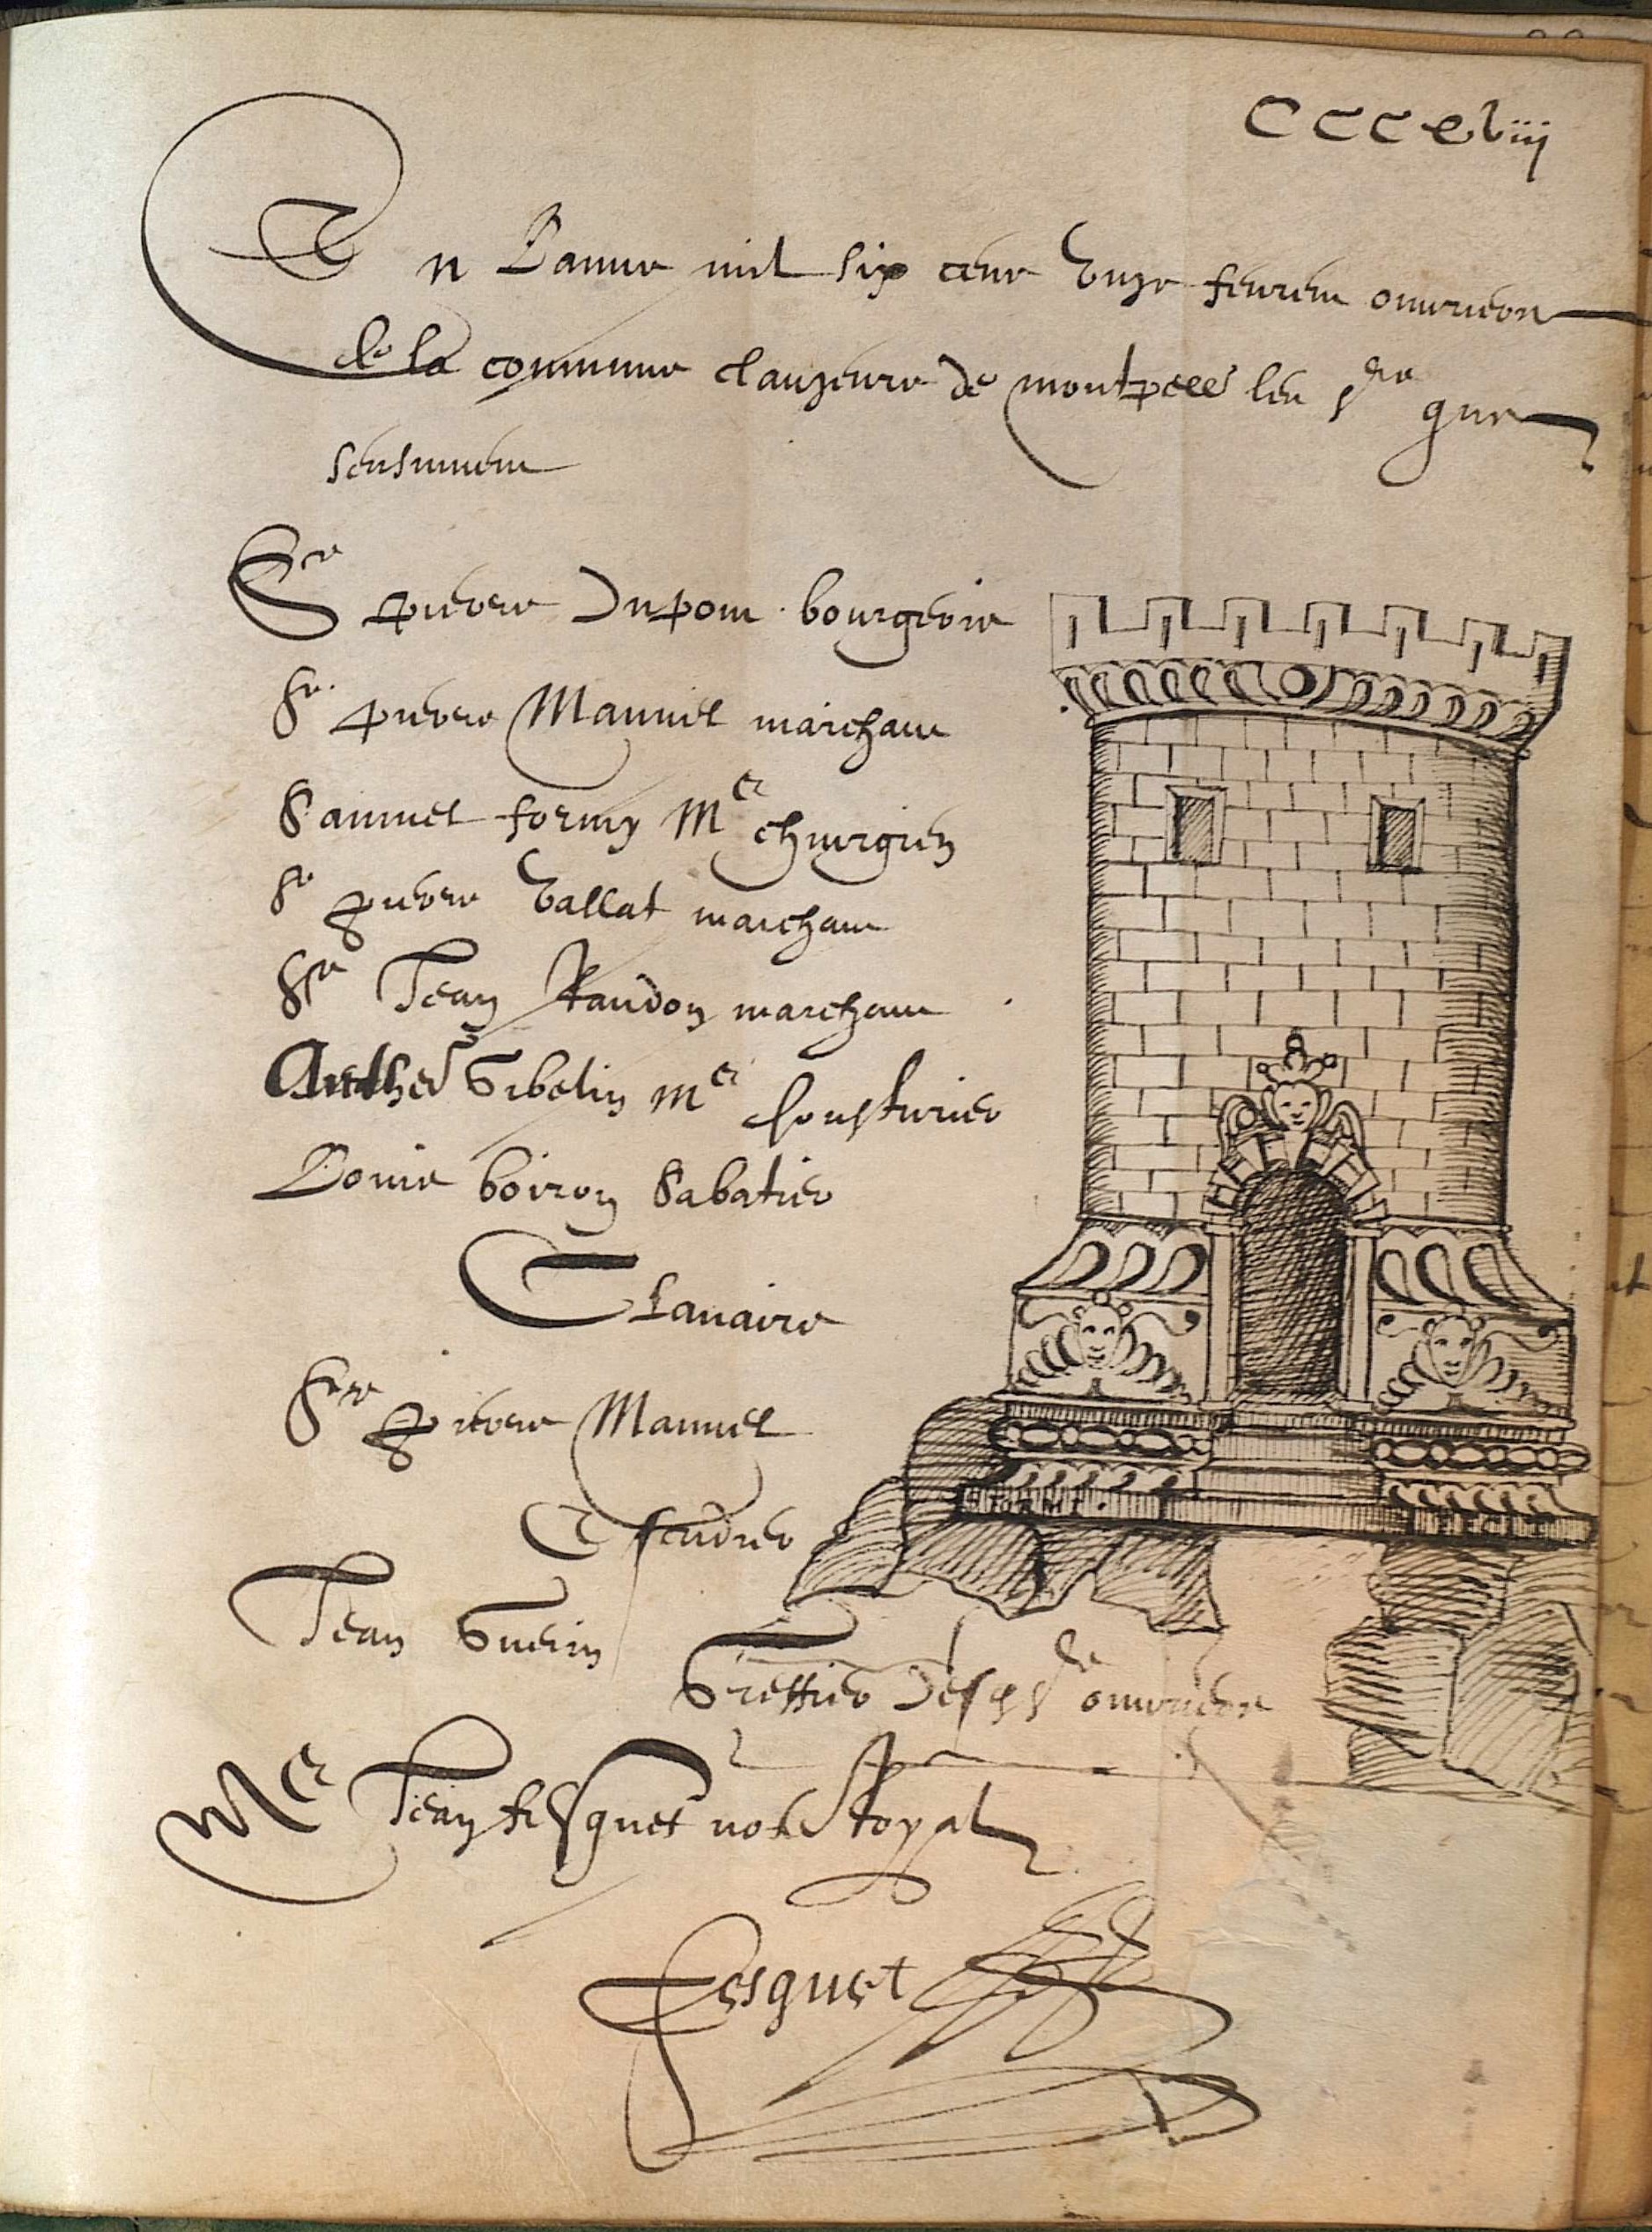 CCCClviij
En Lannee mil six cens Unze feurent ouvriers
de la commune clauzeure de montpellr les srs que
sensuivent
Sr pierre Dupont bourgeois
Sr pierre Manuel marchant
Samuel formy Mer chirurgien
Sr pierre Vallat marchant
Sr Jean Randon marchant
Anthe Gibelin mer cousturier
Lois boiron Sabatier
Clavaire
Sr pierre Manuel
Escudier
Jean Guerin
Greffier desds srs ouvriers
Me Jean fesquet note Royal
Fesquet